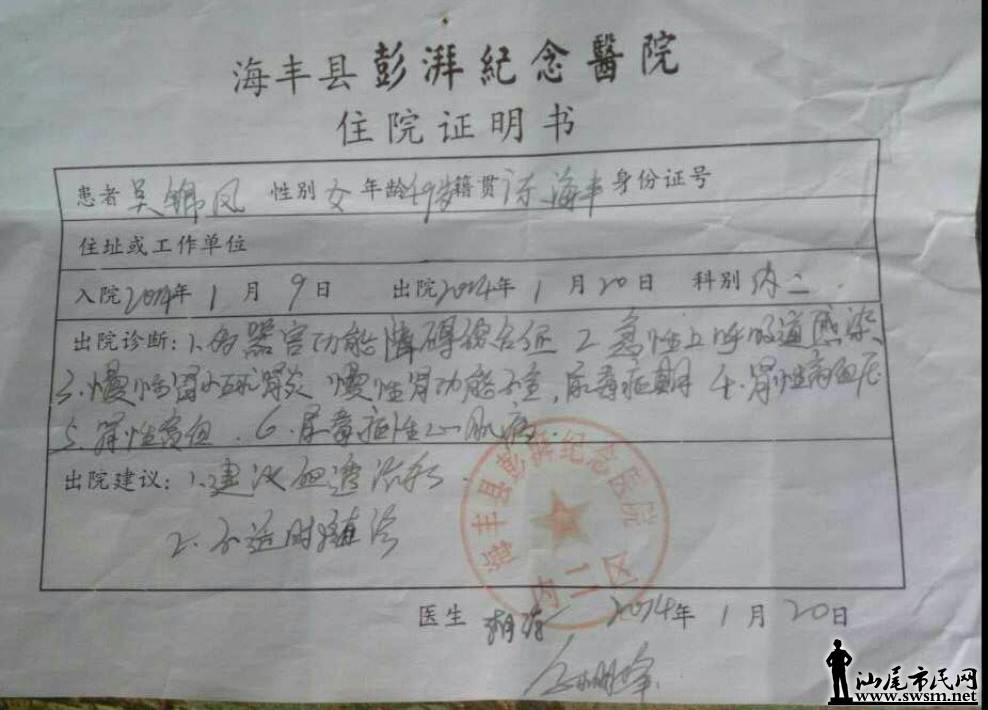 海丰县彭湃纪念醫院
住院证明书
患者 吴锦凤 性别 女 年龄 49岁 籍贯 广东海丰 身份证号
住址或工作单位
入院2014年 1 月 9 日 出院2014年 1 月 20 日 科别 内二
出院诊断：1.多器官功能障碍综合征 2.急性上呼吸道感染
3.慢性肾小球肾炎 慢性肾功能不全，尿毒症期 4.肾性高血压
5.肾性贫血. 6.尿毒症性心肌病.
出院建议：1.建议血透治疗
2.不适时随诊
海丰县彭湃纪念医院
内二区
医生 2014年 1 月 20日
汕尾市民网
www.swsm.net